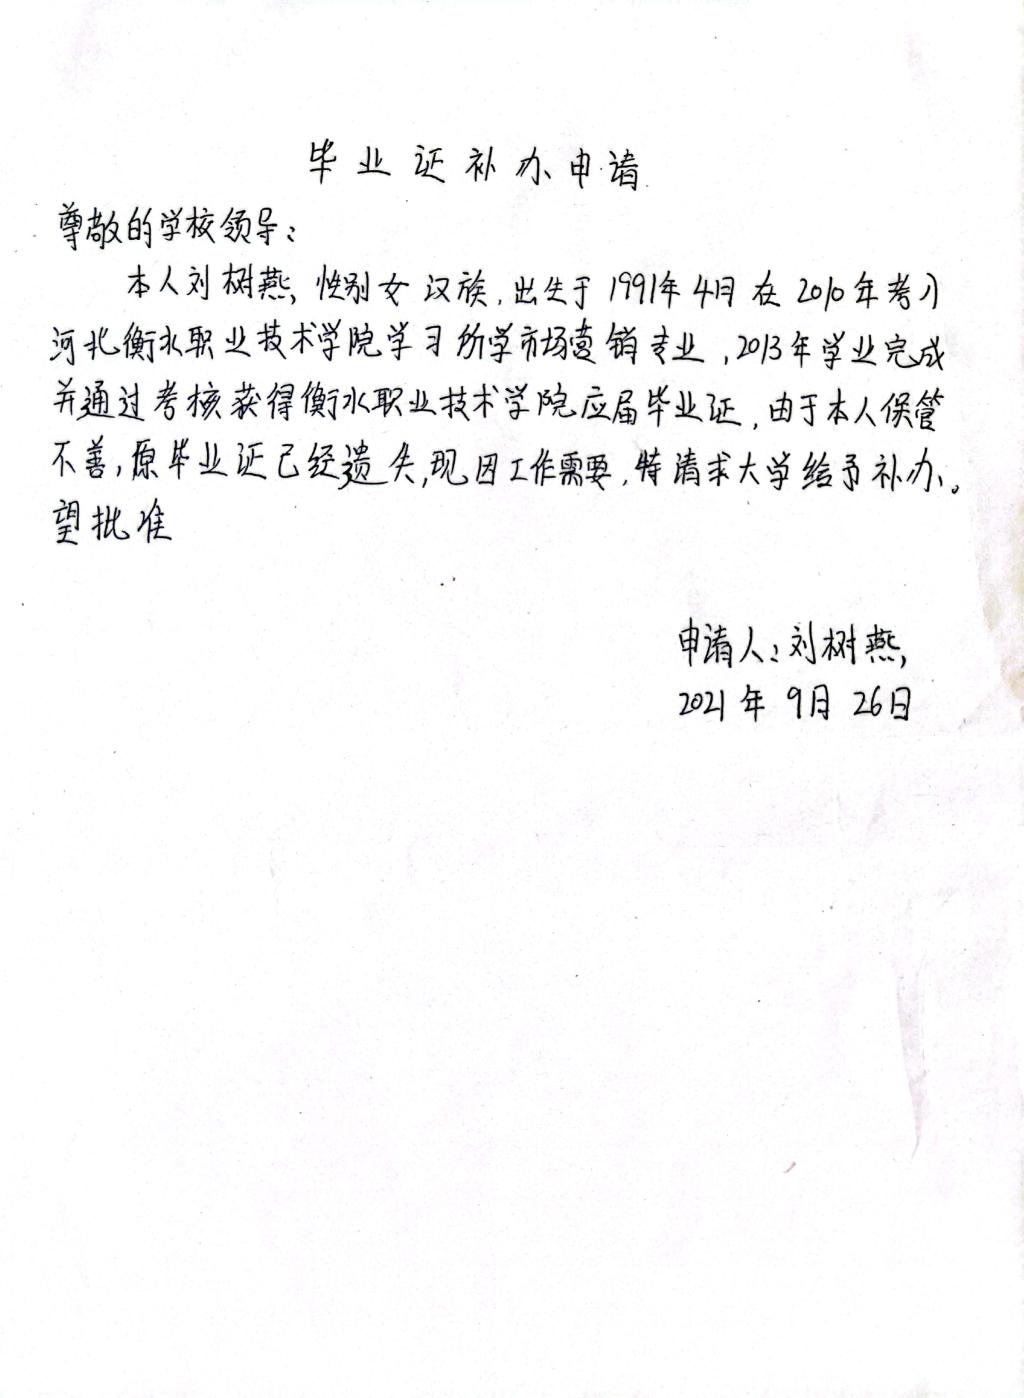 毕业证补办申请
尊敬的学校领导：
本人刘树燕，性别女 汉族，出生于1991年4月在2010年考入
河北衡水职业技术学院学习所学市场营销专业，2013年学业完成
并通过考核获得衡水职业技术学院应届毕业证，由于本人保管
不善，原毕业证已经遗失，现因工作需要，特请求大学给予补办。
望批准
申请人：刘树燕，
2021年9月26日